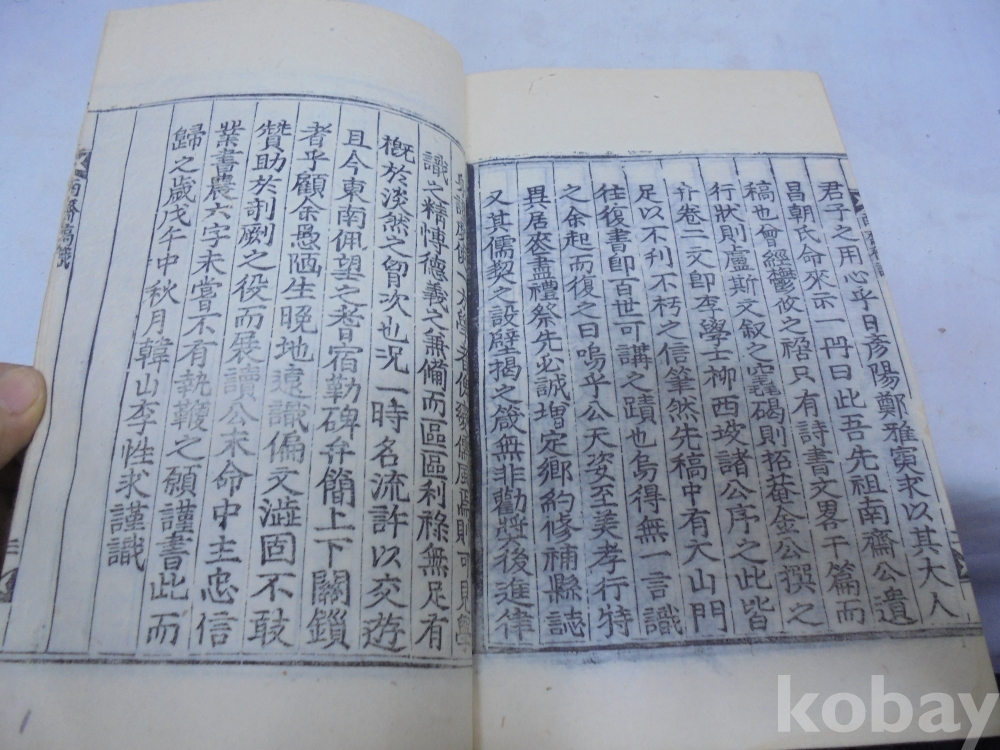 君子之用心乎日彦陽鄭雅寅求以其大人
昌朝氏命來示一冊曰此吾先祖南齋公遺
稿也曾經鬱攸之禍只有詩書文畧干篇而
行狀則盧斯文叙之竁碣則招菴金公撰之
弁卷二文卽李學士柳西坡諸公序之此皆
足以不刋不朽之信筆然先稿中有大山門
往復書卽百世可講之蹟也烏得無一言識
之余起而復之曰嗚乎公天姿至美孝行特
異居喪盡禮祭先必誠增定鄉約修補縣誌
又其儒契之設壁揭之箴無非勸奬後進律
識之精愽德義之兼備而區區利祿無足有
槪於淡然之胷次也况一時名流許以交遊
且今東南佩望之耆宿勒碑弁簡上下關鎻
者乎顧余愚陋生晩地遠識偏文澁固不敢
贊助於剞劂之役而展讀公末命中主忠信
業書農六字未嘗不有執鞭之願謹書此而
歸之歲戊午中秋月韓山李性求謹識
kobay